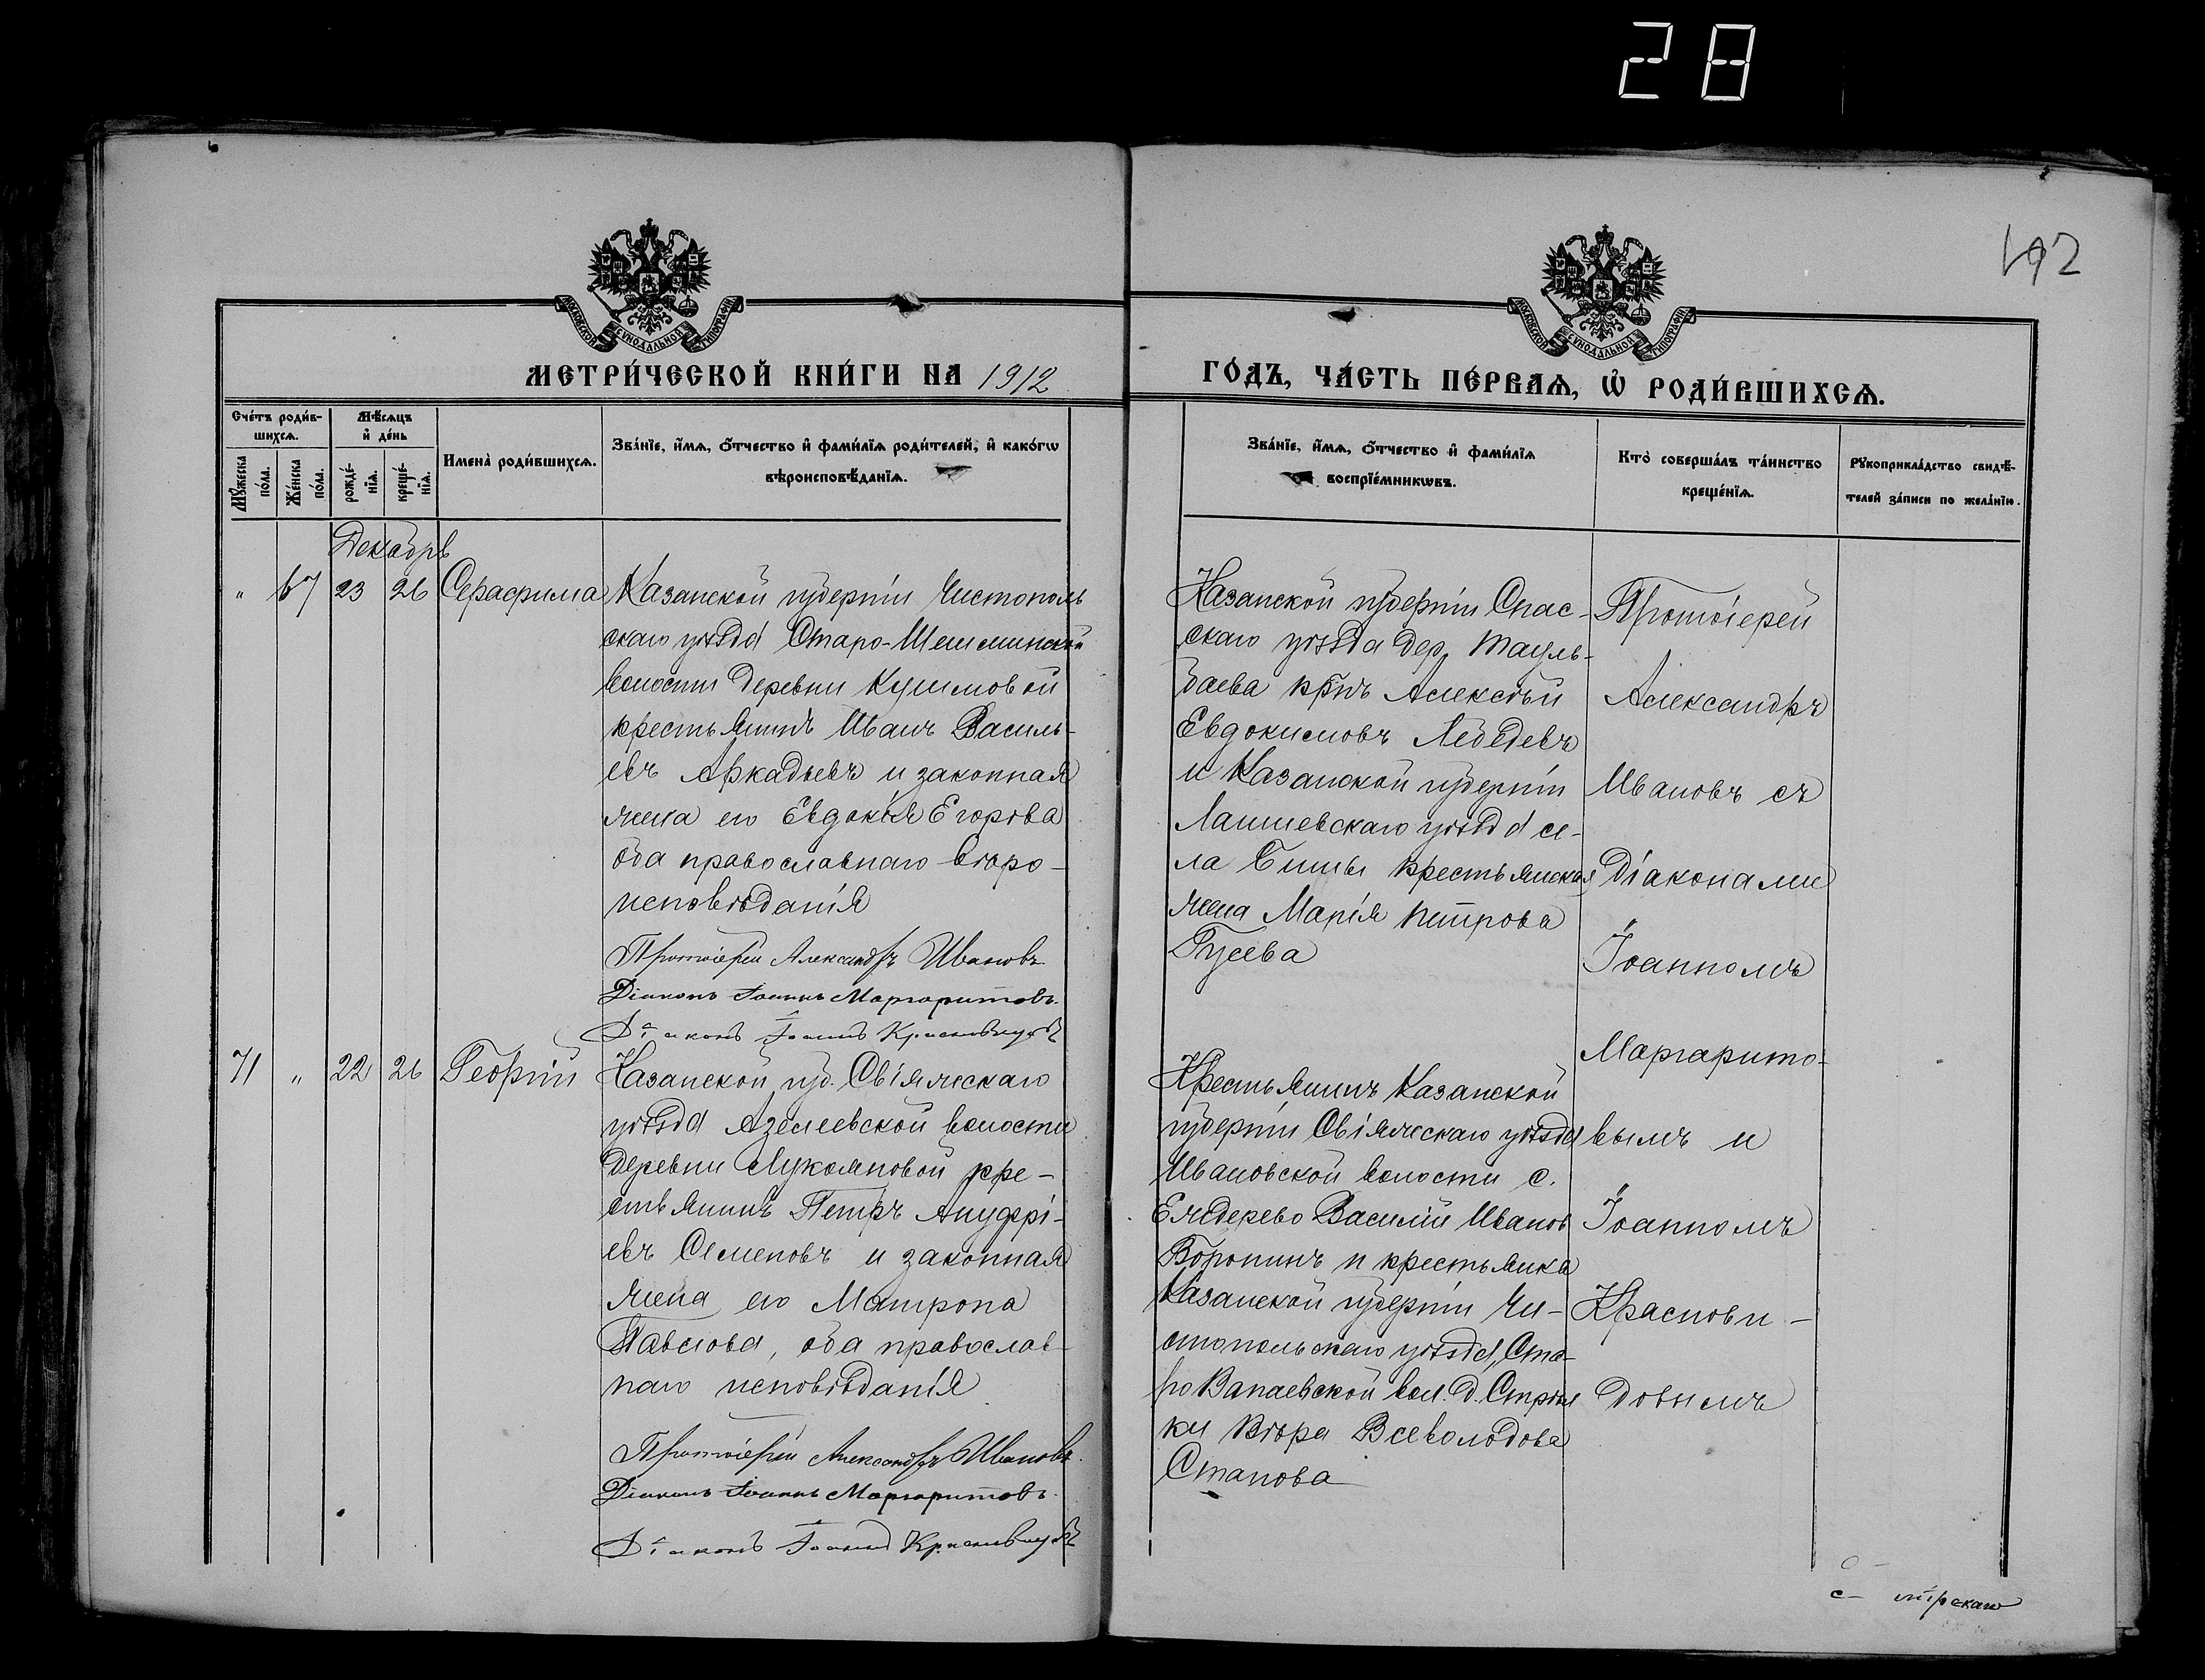 28
192
МОСКОВСКОЙ СУНОДАЛЬНОЙ ТИПОГРАФІИ
МОСКОВСКОЙ СУНОДАЛЬНОЙ ТИПОГРАФІИ
МЕТРИ́ЧЕСКОЙ КНИ́ГИ НА 1912
ГО́ДЪ, ЧА́СТЬ ПЕ́РВАѦ, Ѡ҆ РОДИ́ВШИХСѦ.
Сче́тъ роди́в-
шихсѧ.
Мꙋ́жеска по́ла.
Же́нска по́ла.
Мѣ́сѧцъ
и҆ де́нь
рожде́-
нїѧ.
креще́-
нїѧ.
Имена̀ роди́вшихсѧ.
Зва́нїе, и҆́мѧ, ѻ҆́тчество и҆ фами́лїѧ роди́телей, и҆ како́гѡ
вѣроисповѣ́данїѧ.
Зва́нїе, и҆́мѧ, ѻ҆́тчество и҆ фами́лїѧ
воспрїе́мникѡвъ.
Кто̀ соверша́лъ та́инство
креще́нїѧ.
Рꙋкоприкла́дство свидѣ́-
телей за́писи по жела́нїю.
Декабрь
" 67 23 26 Серафима
Казанской губерніи Чистополь
скаго уѣзда Старо-Шешминской
волости деревни Кушмовой
крестьянинъ Иванъ Василь-
евъ Аркадьевъ и законная
жена его Евдокія Егорова
оба православнаго вѣро-
исповѣданія
Протоіерей Александръ Ивановъ
Діаконъ Іоаннъ Маргаритовъ.
Діаконъ Іоаннъ Красновидовъ
Казанской губерніи Спас-
скаго уѣзда дер. Тауль-
баева крнъ Алексѣй
Евдокимовъ Лебедевъ
и Казанской губерніи
Лаишевскаго уѣзда се-
ла Бимы крестьянская
жена Марія Петрова
Гусева
Протоіерей
Александръ
Ивановъ съ
Діаконами
Іоанномъ
Маргарито-
вымъ и
Іоанномъ
Краснови-
довымъ
71 " 22 26 Георгій
Казанской губ. Свіяжскаго
уѣзда Азелеевской волости
деревни Лукояновой кре-
стьянинъ Петръ Ануфрі-
евъ Семеновъ и законная
жена его Матрона
Павлова, оба православ-
наго исповѣданія
Протоіерей Александръ Ивановъ.
Діаконъ Іоаннъ Маргаритовъ.
Діаконъ Іоаннъ Красновидовъ
Крестьянинъ Казанской
губерніи Свіяжскаго уѣзда
Ивановской волости с.
Ежедерево Василій Иванов
Воронинъ и крестьянка
Казанской губерніи Чи-
стопольскаго уѣзда, Ста-
ро Ванаевской вол. д. Стрѣл
ки Вѣра Всеволодова
Стапова